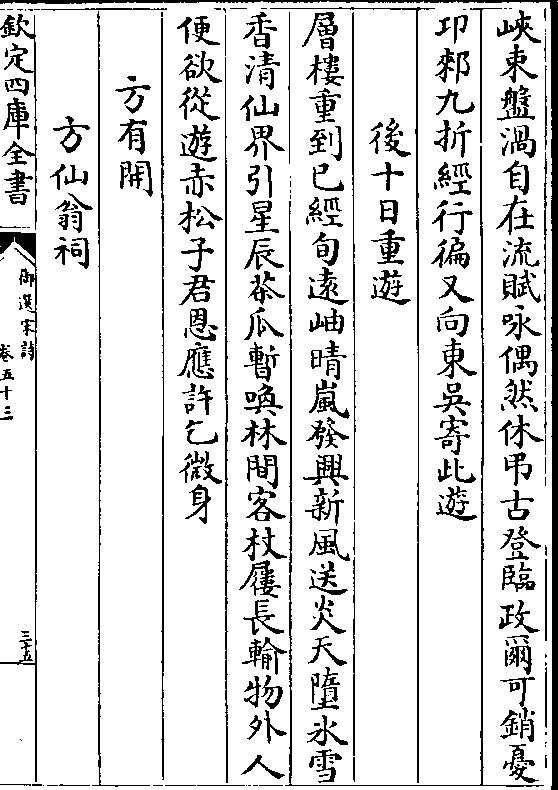 峽東盤渦自在流賦咏偶然休弔古登臨政爾可銷憂
卭郲九折經行徧又向東吳寄此遊
後十日重遊
層樓重到已經旬遠岫晴嵐發興新風送炎天墮氷雪
香清仙界引星辰茶瓜暫喚林間客杖屨長輸物外人
便欲從遊赤松子君恩應許乞微身
方有開
方仙翁祠
欽定四庫全書
御選宋詩
卷五十三
三十五